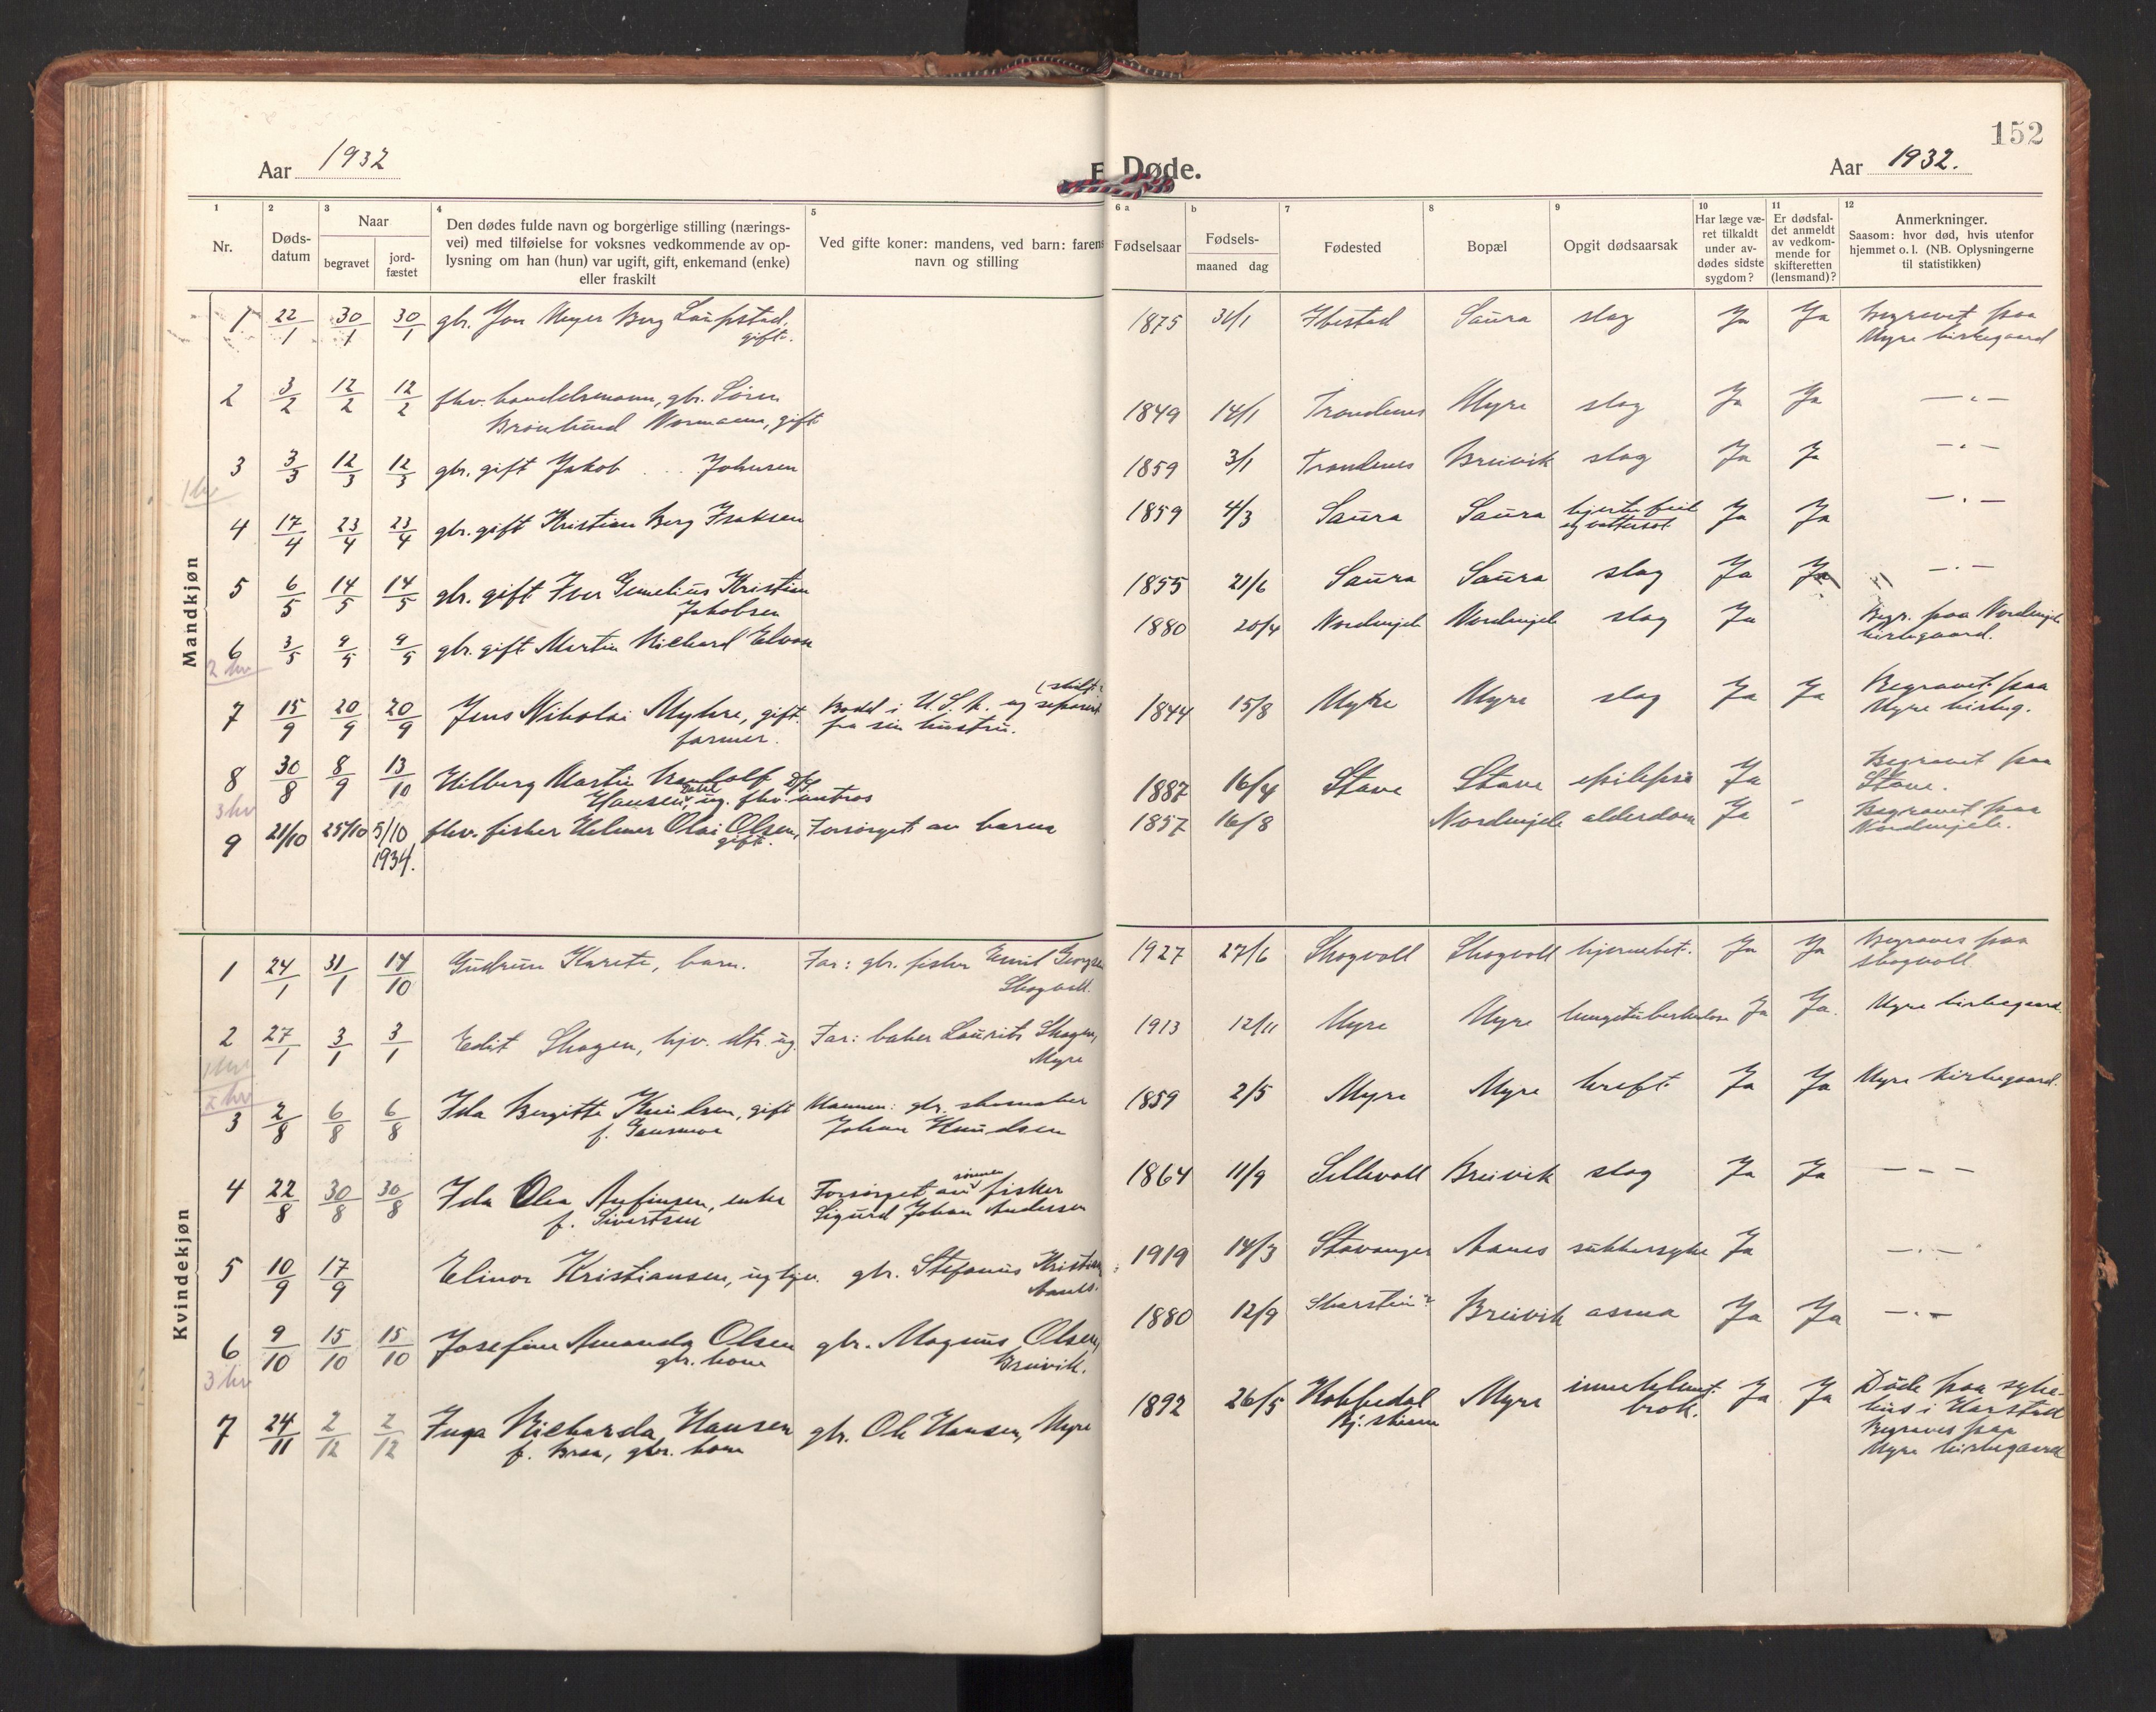 152
Aar 1932
Døde.
Aar 1932.
1 2 3 4 5 6 a b 7 8 9 10 11 12
Nr.
Døds-
datum
Naar
begravet
jord-
fæstet
Den dødes fulde navn og borgerlige stilling (nærings-
vei) med tilføielse for voksnes vedkommende av op-
lysning om han (hun) var ugift, gift, enkemand (enke)
eller fraskilt
Ved gifte koner: mandens, ved barn: farens
navn og stilling
Fødselsaar
Fødsels-
maaned dag
Fødested
Bopæl
Opgit dødsaarsak
Har læge væ-
ret tilkaldt
under av-
dødes sidste
sygdom?
Er dødsfal-
det anmeldt
av vedkom-
mende for
skifteretten
(lensmand)?
Anmerkninger.
Saasom: hvor død, hvis utenfor
hjemmet o. l. (NB. Oplysningerne
til statistikken)
Mandkjøn
1 22/1 30/1 30/1 gbr. Jon Meyer Berg Laupstad, 1875 31/1 Ibestad Saura slag Ja Ja Begravet paa
gift. Myre kirkegaard
2 3/2 12/2 12/2 fhv. handelsmann, gbr. Sören 1849 14/1 Trondenes Myre slag Ja Ja — " —
Brönlund Normann, gift
3 3/3 12/3 12/3 gbr. gift Jakob . . . Johnsen 1859 3/1 Trondenes Breivik slag Ja Ja — " —
1 kv
4 17/4 23/4 23/4 gbr. gift Kristian Berg Isaksen 1859 4/3 Saura Saura hjertefeil Ja Ja — " —
og vattersot
5 6/5 14/5 14/5 gbr. gift Iver Kristian 1855 21/6 Saura Saura slag Ja Ja — " —
Jakobsen
6 3/5 9/5 9/5 gbr. gift Martin Richard 1880 20/4 Nordmjele Nordmjele slag Ja Begr. paa Nordmjele
2 kv kirkegaard.
7 15/9 20/9 20/9 Jens Nikolai Myhre, gift. Bodd i U.S.A. og separert 1844 15/8 Myre Myre slag Ja Ja Begravet paa
farmer. fra sin hustru. Myre kirkeg.
8 30/8 8/9 13/10 Hilberg Martin 1887 16/4 Stave Stave epilepsi Ja Begravet paa
Hansen, ug. fhv. Stave.
3 kv
9 21/10 25/10 5/10 fhv. fisker Helmer Olai Olsen, Forsörget av barna 1857 16/8 Nordmjele alderdom Ja - Begravet paa
1934. gift. Nordmjele.
Kvindekjøn
1 24/1 31/1 14/10 Gudrun Karete, barn. Far: gbr. fisker Emil Georg 1927 27/6 Skogvoll Skogvoll hjernebet. Ja Ja Begraves paa
Skogvoll. Skogvoll
2 27/1 3/1 3/1 Edit Skogen, hjv. dtr. ug. Far: baker Laurits Skogen, 1913 12/11 Myre Myre lungetuberkulose Ja Ja. Myre kirkegaard.
Myre
1 kv
2 kv
3 2/8 6/8 6/8 Ida Bergitte Knudsen, gift Mannen: gbr. skomaker 1859 2/5 Myre Myre kreft Ja Ja Myre kirkegaard.
Johan Knudsen
4 22/8 30/8 30/8 Ida Olea Anfinsen, enke Forsörget av sönnen fisker 1864 11/9 Sellevoll Breivik slag Ja Ja — " —
f. Sivertsen Sigurd Johan Andersen
5 10/9 17/9 Elinor Kristiansen, ug tjen. gbr. Stefanus Kristian 1919 14/3 Stavanger Aanes sukkersyke Ja — " —
Aanes.
6 9/10 15/10 15/10 Josefine Amanda Olsen gbr. Magnus Olsen, 1880 12/9 Skarstein? Breivik asma Ja Ja — " —
gbr. kone Breivik.
3 kv
7 24/11 2/12 2/12 Inga Richarda Hansen gbr. Ole Hansen, Myre 1892 26/5 Kobbedal Myre inneklemt Ja Ja Döde paa syke-
f. Braa, gbr. kone Kj. brok. hus i Harstad
Begraves paa
Myre kirkegaard